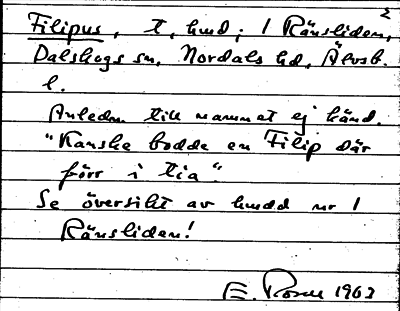 2
Filipus, t, hmd; 1 Ränsliden,
Dalskogs sn, Nordals hd, Älvsb.
l.
Anledn till namnet ej känd.
"Kanske bodde en Filip där
förr i tia".
Se översikt av hmdd nr 1
Ränsliden!
E. Rosell 1963